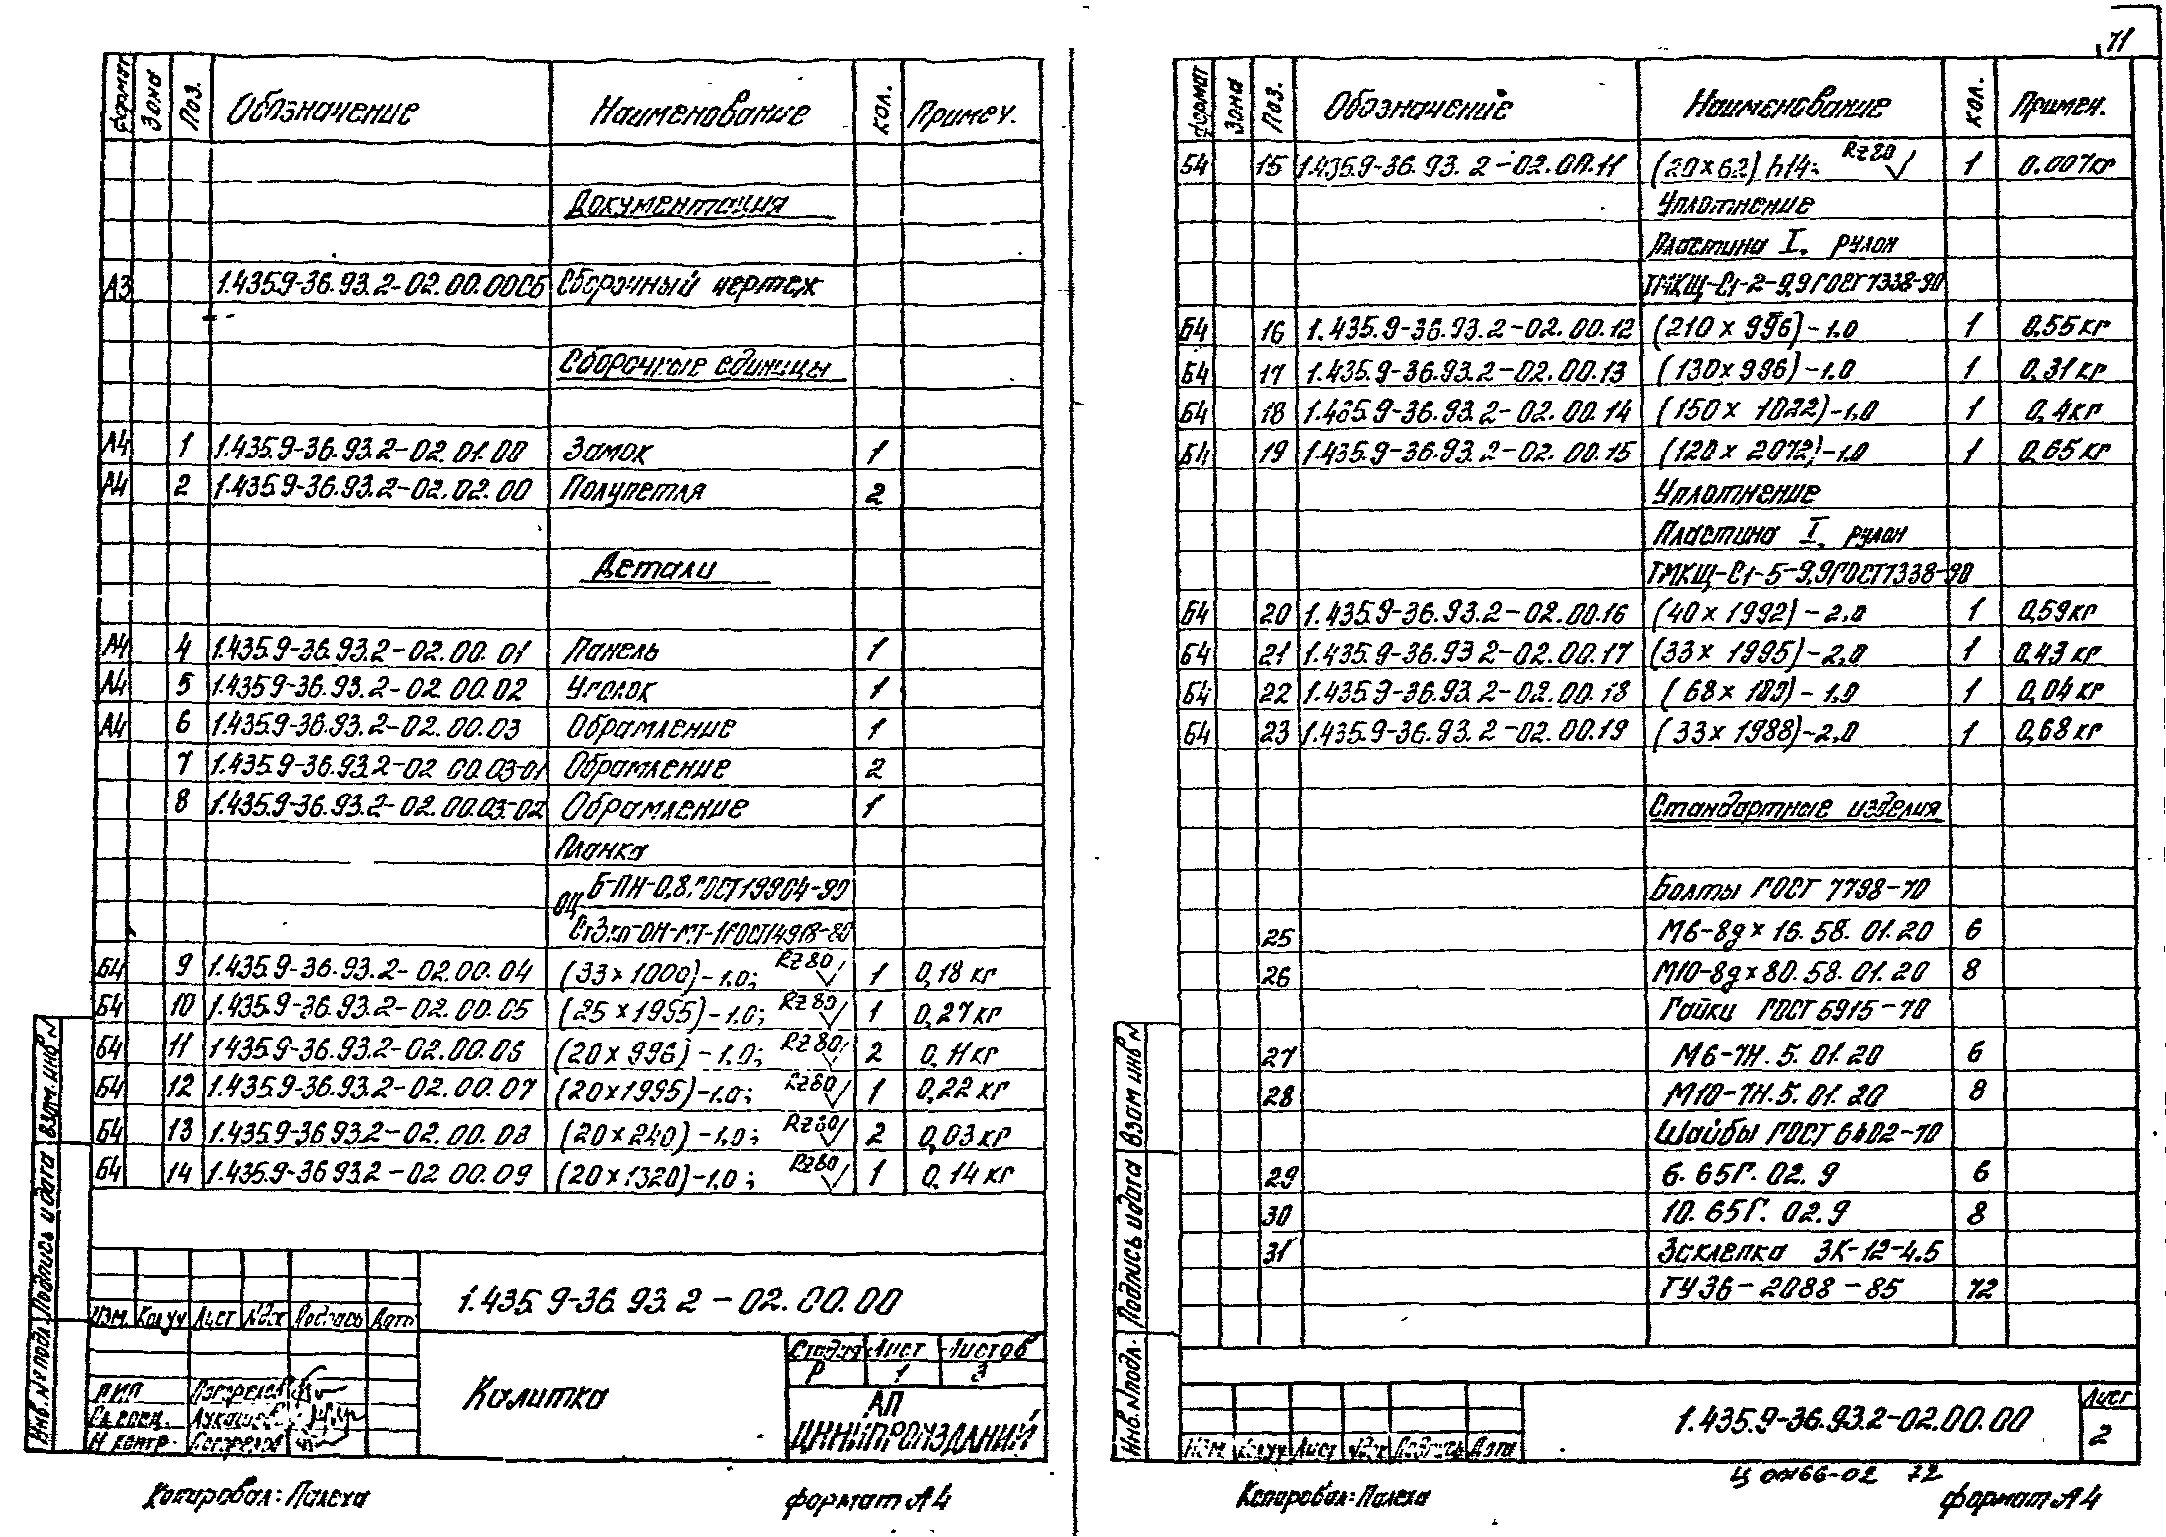 71
формат Зона Поз. Обозначение Наименование кол. Примеч.
Документация
А3 1.435.9-36.93.2-02.00.00СБ Сборочный чертеж
Сборочные единицы
А4 1 1.435.9-36.93.2-02.01.00 Замок 1
А4 2 1.435.9-36.93.2-02.02.00 Полупетля 2
Детали
А4 4 1.435.9-36.93.2-02.00.01 Панель 1
А4 5 1.435.9-36.93.2-02.00.02 Уголок 1
А4 6 1.435.9-36.93.2-02.00.03 Обрамление 1
7 1.435.9-36.93.2-02.00.03-01 Обрамление 2
8 1.435.9-36.93.2-02.00.03-02 Обрамление 1
Планка
Б-ПН-0,8.ГОСТ19904-90
ОЦ
Ст3кп-ОН-МТ-1ГОСТ14918-80
Б4 9 1.435.9-36.93.2-02.00.04 (33×1000)-1.0; Rz80 1 0,18 кг
Б4 10 1.435.9-36.93.2-02.00.05 (25×1995)-1.0; Rz80 1 0,27 кг
Б4 11 1435.9-36.93.2-02.00.06 (20×996)-1.0; Rz80 2 0,11 кг
Б4 12 1.435.9-36.93.2-02.00.07 (20×1995)-1.0; Rz80 1 0,22 кг
Б4 13 1.435.9-36.93.2-02.00.08 (20×240)-1.0; Rz80 2 0,03 кг
Б4 14 1.435.9-36.93.2-02.00.09 (20×1320)-1.0; Rz80 1 0,14 кг
Инв. № подл Подпись и дата Взам. инв №
1.435.9-36.93.2-02.00.00
Изм. Кол уч Лист №док Подпись Дата
Калитка
Стадия Лист Листов
Р 1 3
АП
ЦНИИПРОМЗДАНИЙ
ГИП
Гл. спец.
Н контр.
Копировал: Палеха формат А4
формат Зона Поз. Обозначение Наименование кол. Примеч.
Б4 15 1.435.9-36.93.2-02.00.11 (20×62) h14; Rz80 1 0.007кг
Уплотнение
Пластина I, рулон
ТМКЩ-С1-2-9,9ГОСТ7338-90
Б4 16 1.435.9-36.93.2-02.00.12 (210×996)-1.0 1 0.55 кг
Б4 17 1.435.9-36.93.2-02.00.13 (130×996)-1.0 1 0,31 кг
Б4 18 1.435.9-36.93.2-02.00.14 (150×1022)-1,0 1 0,4кг
Б4 19 1.435.9-36.93.2-02.00.15 (120×2072)-1.0 1 0,65 кг
Уплотнение
Пластина I, рулон
ТМКЩ-С1-5-9,9ГОСТ7338-90
Б4 20 1.435.9-36.93.2-02.00.16 (40×1992)-2,0 1 0,59кг
Б4 21 1.435.9-36.93 2-02.00.17 (33×1995)-2,0 1 0,43 кг
Б4 22 1.435.9-36.93.2-02.00.18 (68×180)-1.0 1 0,04 кг
Б4 23 1.435.9-36.93.2-02.00.19 (33×1988)-2,0 1 0,68 кг
Стандартные изделия
Болты ГОСТ 7798-70
25 М6-8g×16.58.01.20 6
26 М10-8g×80.58.01.20 8
Гайки ГОСТ 5915-70
27 М6-7Н.5.01.20 6
28 М10-7Н.5.01.20 8
Шайбы ГОСТ 6402-70
29 6.65Г.02.9 6
30 10.65Г.02.9 8
31 Заклепка ЗК-12-4.5
ТУ36-2088-85 72
Инв. № подл. Подпись и дата Взам инв №
1.435.9-36.93.2-02.00.00
Лист
2
Изм Кол уч Лист №док Подпись Дата
72
Копировал: Палеха формат А4